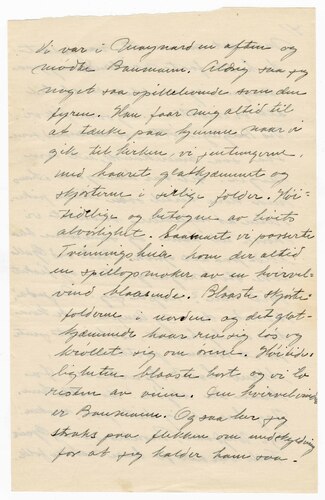 Vi var i Maynard en aften og
mødte Baumann. Aldrig saa jeg
noget saa spillelevende som den
fyren. Han faar mig altid til
at tænke paa hjemme naar vi
gik til kirken vi jentungerne,
med haaret glatkjæmmet og
skjørterne i stilige folder. Høi-
tidlige og betagne av livets
alvorlighet. Saasnart vi passerte
Tvinningskleiva kom der altid
en spillopmaker av en hvirvel-
vind blaasende. Blaaste skjørte-
folderne i uorden og det glat-
kjæmmede haar rev sig løs og
krøllet sig om ørene. Høitide-
ligheten blaaste bort og vi lo
resten av veien. En hvirvelvind
er Baumann. Og saa ber jeg
straks paa flekken om undskyldning
for at jeg kalder ham saa.